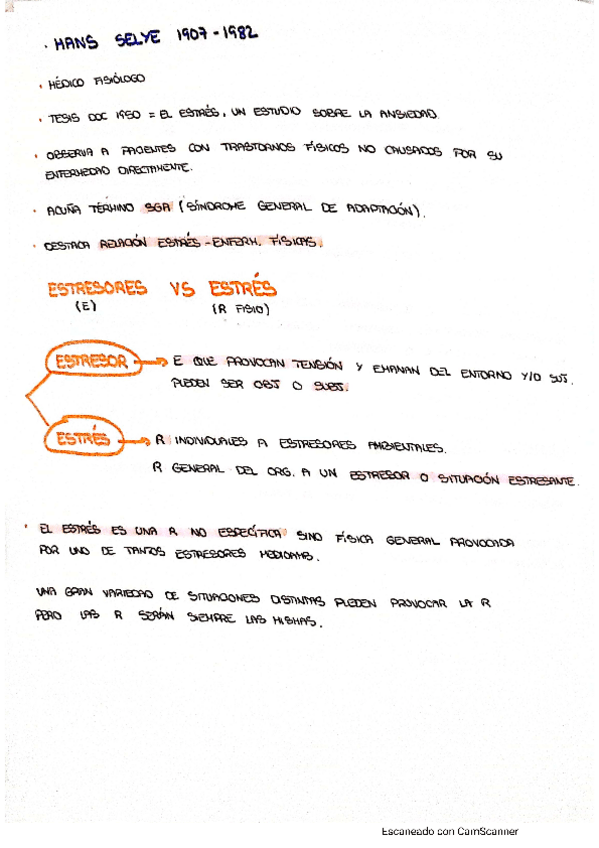 · HANS SELYE 1907-1982
· MÉDICO FISIÓLOGO
· TESIS DOC 1950 = EL ESTRÉS, UN ESTUDIO SOBRE LA ANSIEDAD.
· OBSERVA A PACIENTES CON TRASTORNOS FÍSICOS NO CAUSADOS POR SU
ENFERMEDAD DIRECTAMENTE.
· ACUÑA TÉRMINO SGA (SÍNDROME GENERAL DE ADAPTACIÓN).
· DESTACA RELACIÓN ESTRÉS-ENFERM. FÍSICAS.
ESTRESORES VS ESTRÉS
(E) (R FISIO)
ESTRESOR → E QUE PROVOCAN TENSIÓN Y EMANAN DEL ENTORNO Y/O SUJ.
PUEDEN SER OBJ O SUBJ.
ESTRÉS → R INDIVIDUALES A ESTRESORES AMBIENTALES.
R GENERAL DEL ORG. A UN ESTRESOR O SITUACIÓN ESTRESANTE.
· EL ESTRÉS ES UNA R NO ESPECÍFICA SINO FÍSICA GENERAL PROVOCADA
POR UNO DE TANTOS ESTRESORES MEDIOAMB.
UNA GRAN VARIEDAD DE SITUACIONES DISTINTAS PUEDEN PROVOCAR LA R
PERO LAS R SERÁN SIEMPRE LAS MISMAS.
Escaneado con CamScanner